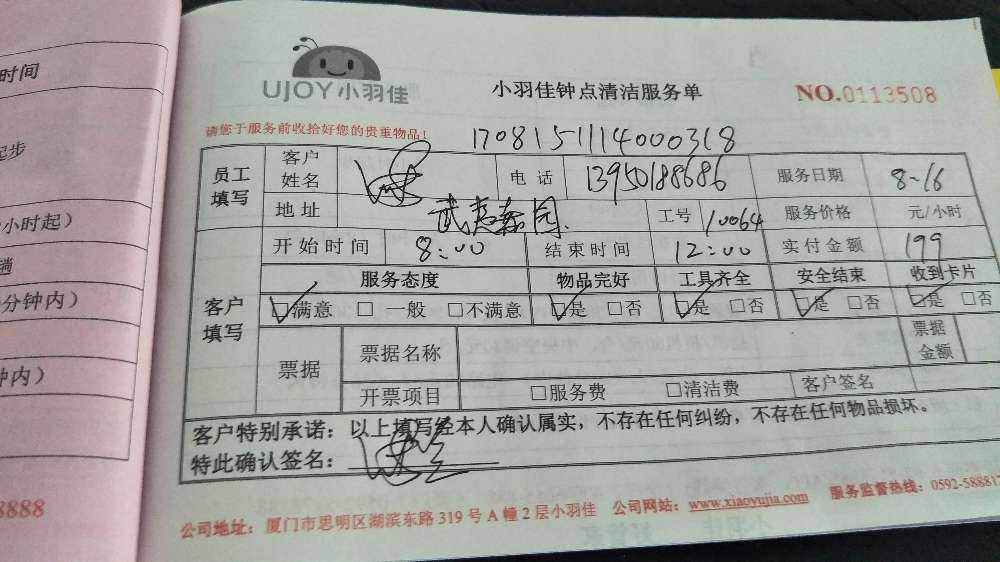 时间
起步
小时起）
趟
分钟内）
钟内）
8888
UJOY小羽佳
小羽佳钟点清洁服务单
NO.0113508
请您于服务前收拾好您的贵重物品！
1708151114000318
员工填写
客户姓名
电话 13950188686
服务日期 8-16
地址
工号 10064
服务价格 元/小时
客户填写
开始时间 8:00
结束时间 12:00
实付金额 199
服务态度 物品完好 工具齐全 安全结束 收到卡片
☑满意 □一般 □不满意 ☑是 □否 ☑是 □否 ☑是 □否 ☑是 □否
票据
票据名称
票据金额
开票项目 □服务费 □清洁费 客户签名
客户特别承诺：以上填写经本人确认属实，不存在任何纠纷，不存在任何物品损坏。
特此确认签名：
公司地址：厦门市思明区湖滨东路319号A幢2层小羽佳 公司网站：www.xiaoyujia.com 服务监督热线：0592-588817